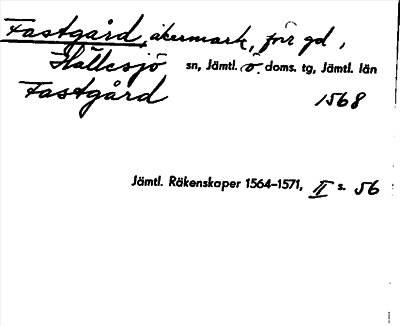 Fastgård, åkermark, förr gd,
Hällesjö sn, Jämtl. ö. doms. tg, Jämtl. län
Fastgård 1568
Jämtl. Räkenskaper 1564–1571, II s. 56